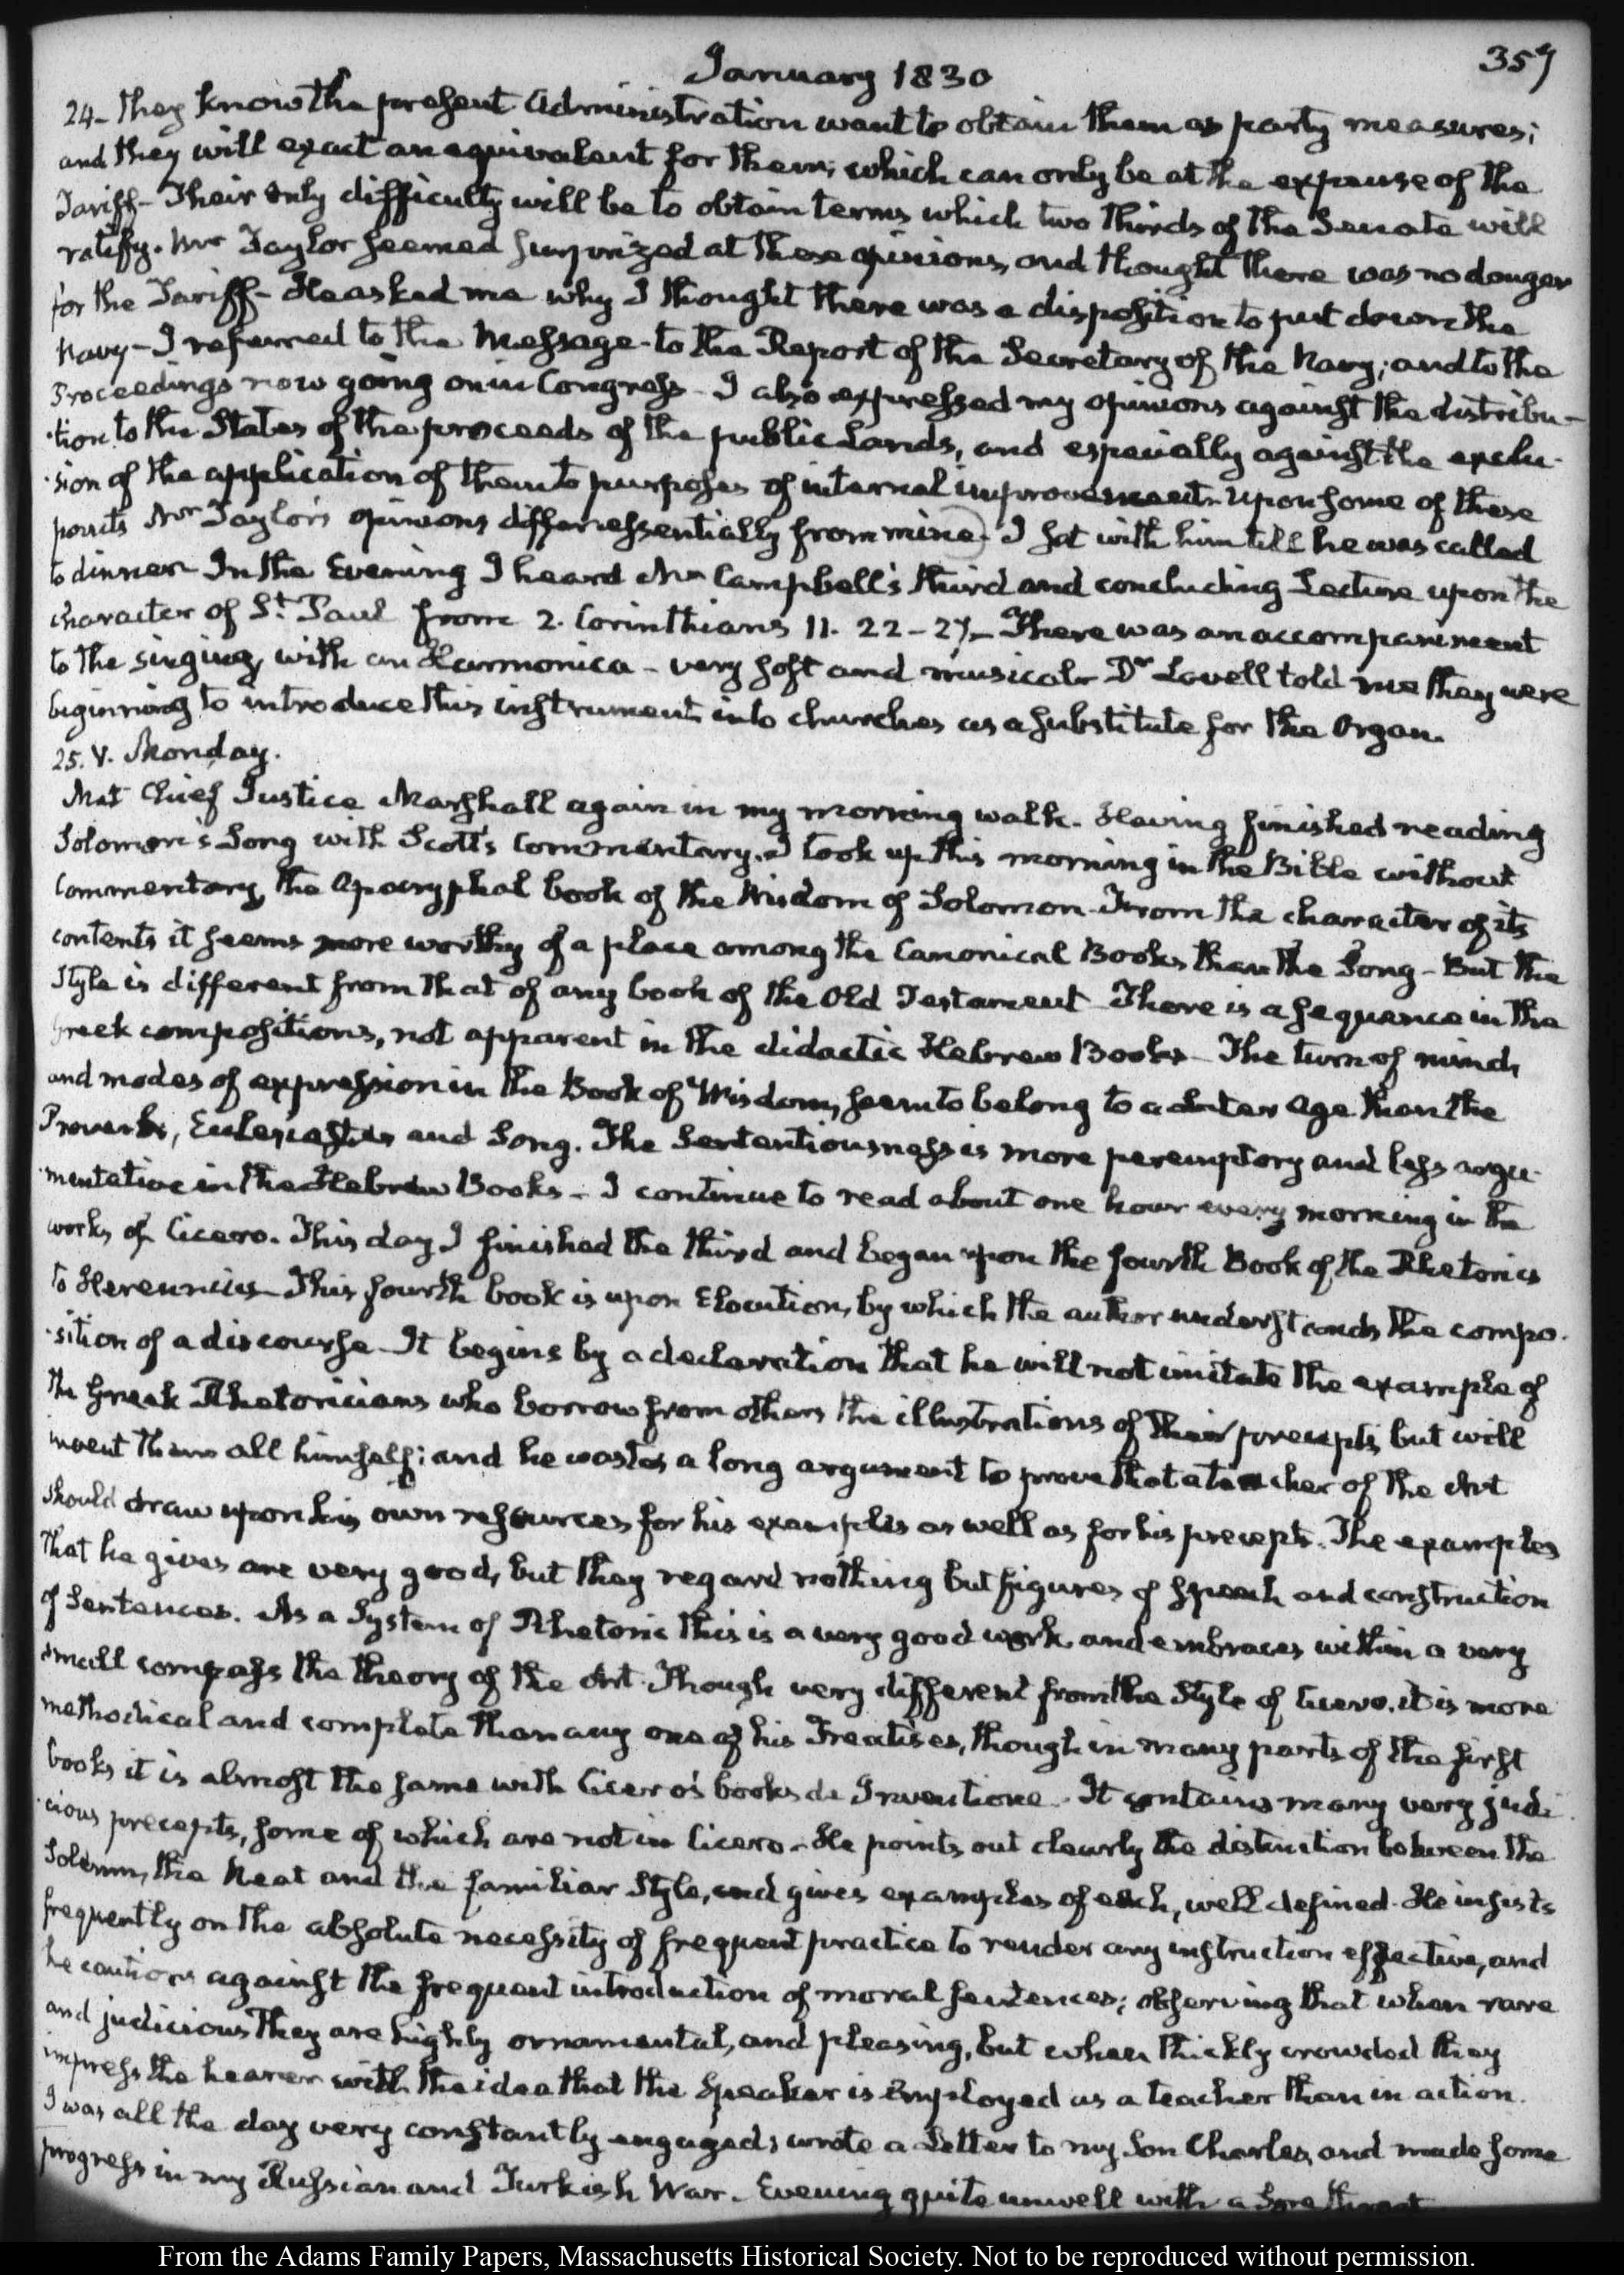 January 1830
357
24– they know the present Administration want to obtain them as party measures;
and they will exact an equivalent for them; which can only be at the expense of the
Tariff– Their only difficulty will be to obtain terms which two thirds of the Senate will
ratify. Mr Taylor seemed surprized at these opinions, and thought there was no danger
for the Tariff– He asked me why I thought there was a disposition to put down the
Navy– I referred to the Message– to the Report of the Secretary of the Navy; and to the
Proceedings now going on in Congress– I also expressed my opinions against the distribu-
-tion to the States of the proceeds of the public Lands, and especially against the exclu-
-sion of the application of them to purposes of internal improvement– Upon some of these
points Mr Taylor's opinions differ essentially from mine– I sat with him till he was called
to dinner– In the Evening I heard Mr Campbell's third and concluding Lecture upon the
character of St. Paul from 2. Corinthians 11. 22–27– There was an accompaniment
to the singing, with an Harmonica– very soft and musical– Dr Lovell told me they were
beginning to introduce this instrument into churches as a substitute for the Organ.
25. V. Monday.
Met Chief Justice Marshall again in my morning walk. Having finished reading
Solomon's Song with Scott's Commentary, I took up this morning in the Bible without
Commentary, the Apocryphal book of the Wisdom of Solomon– From the character of its
contents it seems more worthy of a place among the Canonical Books than the Song– But the
Style is different from that of any book of the Old Testament– There is a sequence in the
Greek compositions, not apparent in the didactic Hebrew Books– The turn of mind,
and modes of expression in the Book of Wisdom, seem to belong to a later age than the
Proverbs, Ecclesiastes and Song. The Sententiousness is more peremptory and less argu-
-mentative in the Hebrew Books– I continue to read about one hour every morning in the
works of Cicero. This day I finished the third and began upon the fourth Book of the Rhetorics
to Herennius– This fourth book is upon Elocution, by which the author understands the compo-
-sition of a discourse– It begins by a declaration that he will not imitate the example of
the Greek Rhetoricians who borrow from others the illustrations of their precepts, but will
invent them all himself; and he wastes a long argument to prove that a teacher of the Art
should draw upon his own resources for his examples as well as for his precepts. The examples
that he gives are very good, but they regard nothing but figures of speech and construction
of Sentences. As a System of Rhetoric this is a very good work, and embraces within a very
small compass the theory of the Art. Though very different from the Style of Cicero, it is more
methodical and complete than any one of his Treatises, though in many parts of the first
books it is almost the same with Cicero's books de Inventione. It contains many very judi-
-cious precepts, some of which are not in Cicero– He points out clearly the distinction between the
Solemn, the Neat and the familiar Style, and gives examples of each, well defined. He insists
frequently on the absolute necessity of frequent practice to render any instruction effective, and
he cautions against the frequent introduction of moral sentences; observing that when rare
and judicious they are highly ornamental, and pleasing, but when thickly crowded they
impress the hearer with the idea that the Speaker is employed as a teacher than in action.
I was all the day very constantly engaged; wrote a Letter to my Son Charles, and made some
progress in my Russian and Turkish War. Evening quite unwell with a Sore throat
From the Adams Family Papers, Massachusetts Historical Society. Not to be reproduced without permission.